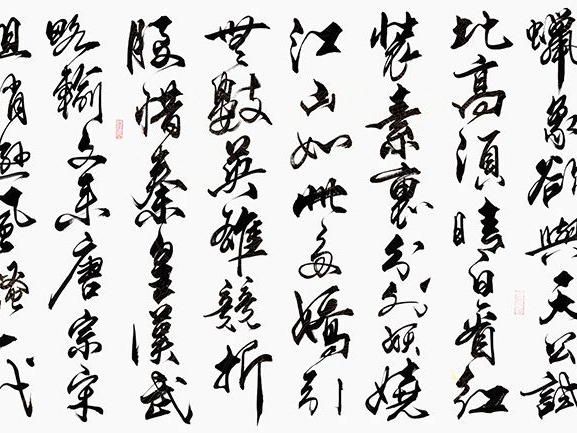 蠟象欲與天公試
比高須晴日看紅
裝素裹分外妖嬈
江山如此多嬌引
無數英雄競折
腰惜秦皇漢武
略輸文采唐宗宋
祖稍遜風騷一代